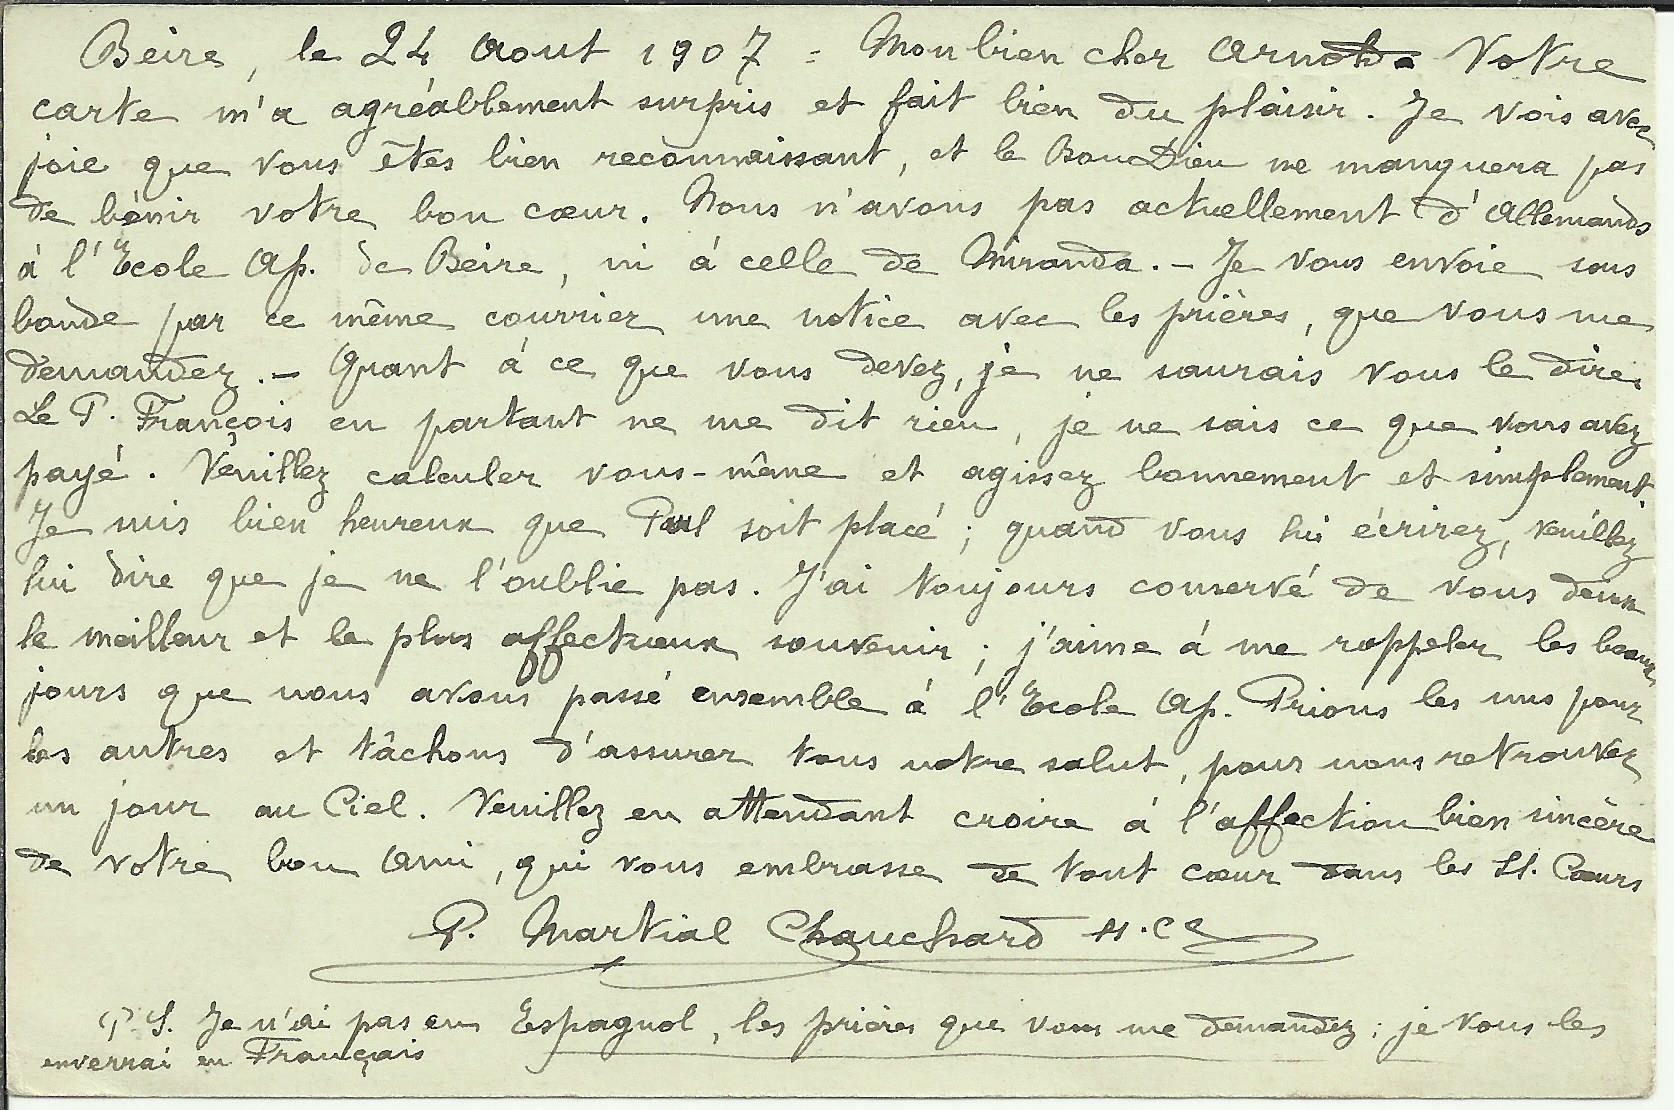 Beire, le 24 Aout 1907 = Mon bien cher Arnold. Votre
carte m'a agréablement surpris et fait bien du plaisir. Je vois avec
joie que vous êtes bien reconnaissant, et le Bon Dieu ne manquera pas
de bénir votre bon cœur. Nous n'avons pas actuellement d'Allemands
à l'Ecole Ap. de Beire, ni à celle de Miranda. - Je vous envoie sous
bande par ce même courrier une notice avec les prières, que vous me
demandez. - Quant à ce que vous devez, je ne saurais vous le dire,
Le P. François en partant ne me dit rien, je ne sais ce que vous avez
payé. Veuillez calculer vous-même et agissez bonnement et simplement.
Je suis bien heureux que Paul soit placé ; quand vous lui écrirez, veuillez
lui dire que je ne l'oublie pas. J'ai toujours conservé de vous deux
le meilleur et le plus affectueux souvenir ; j'aime à me rappeler les beaux
jours que nous avons passé ensemble à l'Ecole Ap. Prions les uns pour
les autres et tâchons d'assurer tous notre salut, pour nous retrouver
un jour au Ciel. Veuillez en attendant croire à l'affection bien sincère
de votre bon Ami, qui vous embrasse de tout cœur dans les SS. Cœurs
P. Martial Chauchard
P. S. Je n'ai pas en Espagnol, les prières que vous me demandez ; je vous les
enverrai en Français